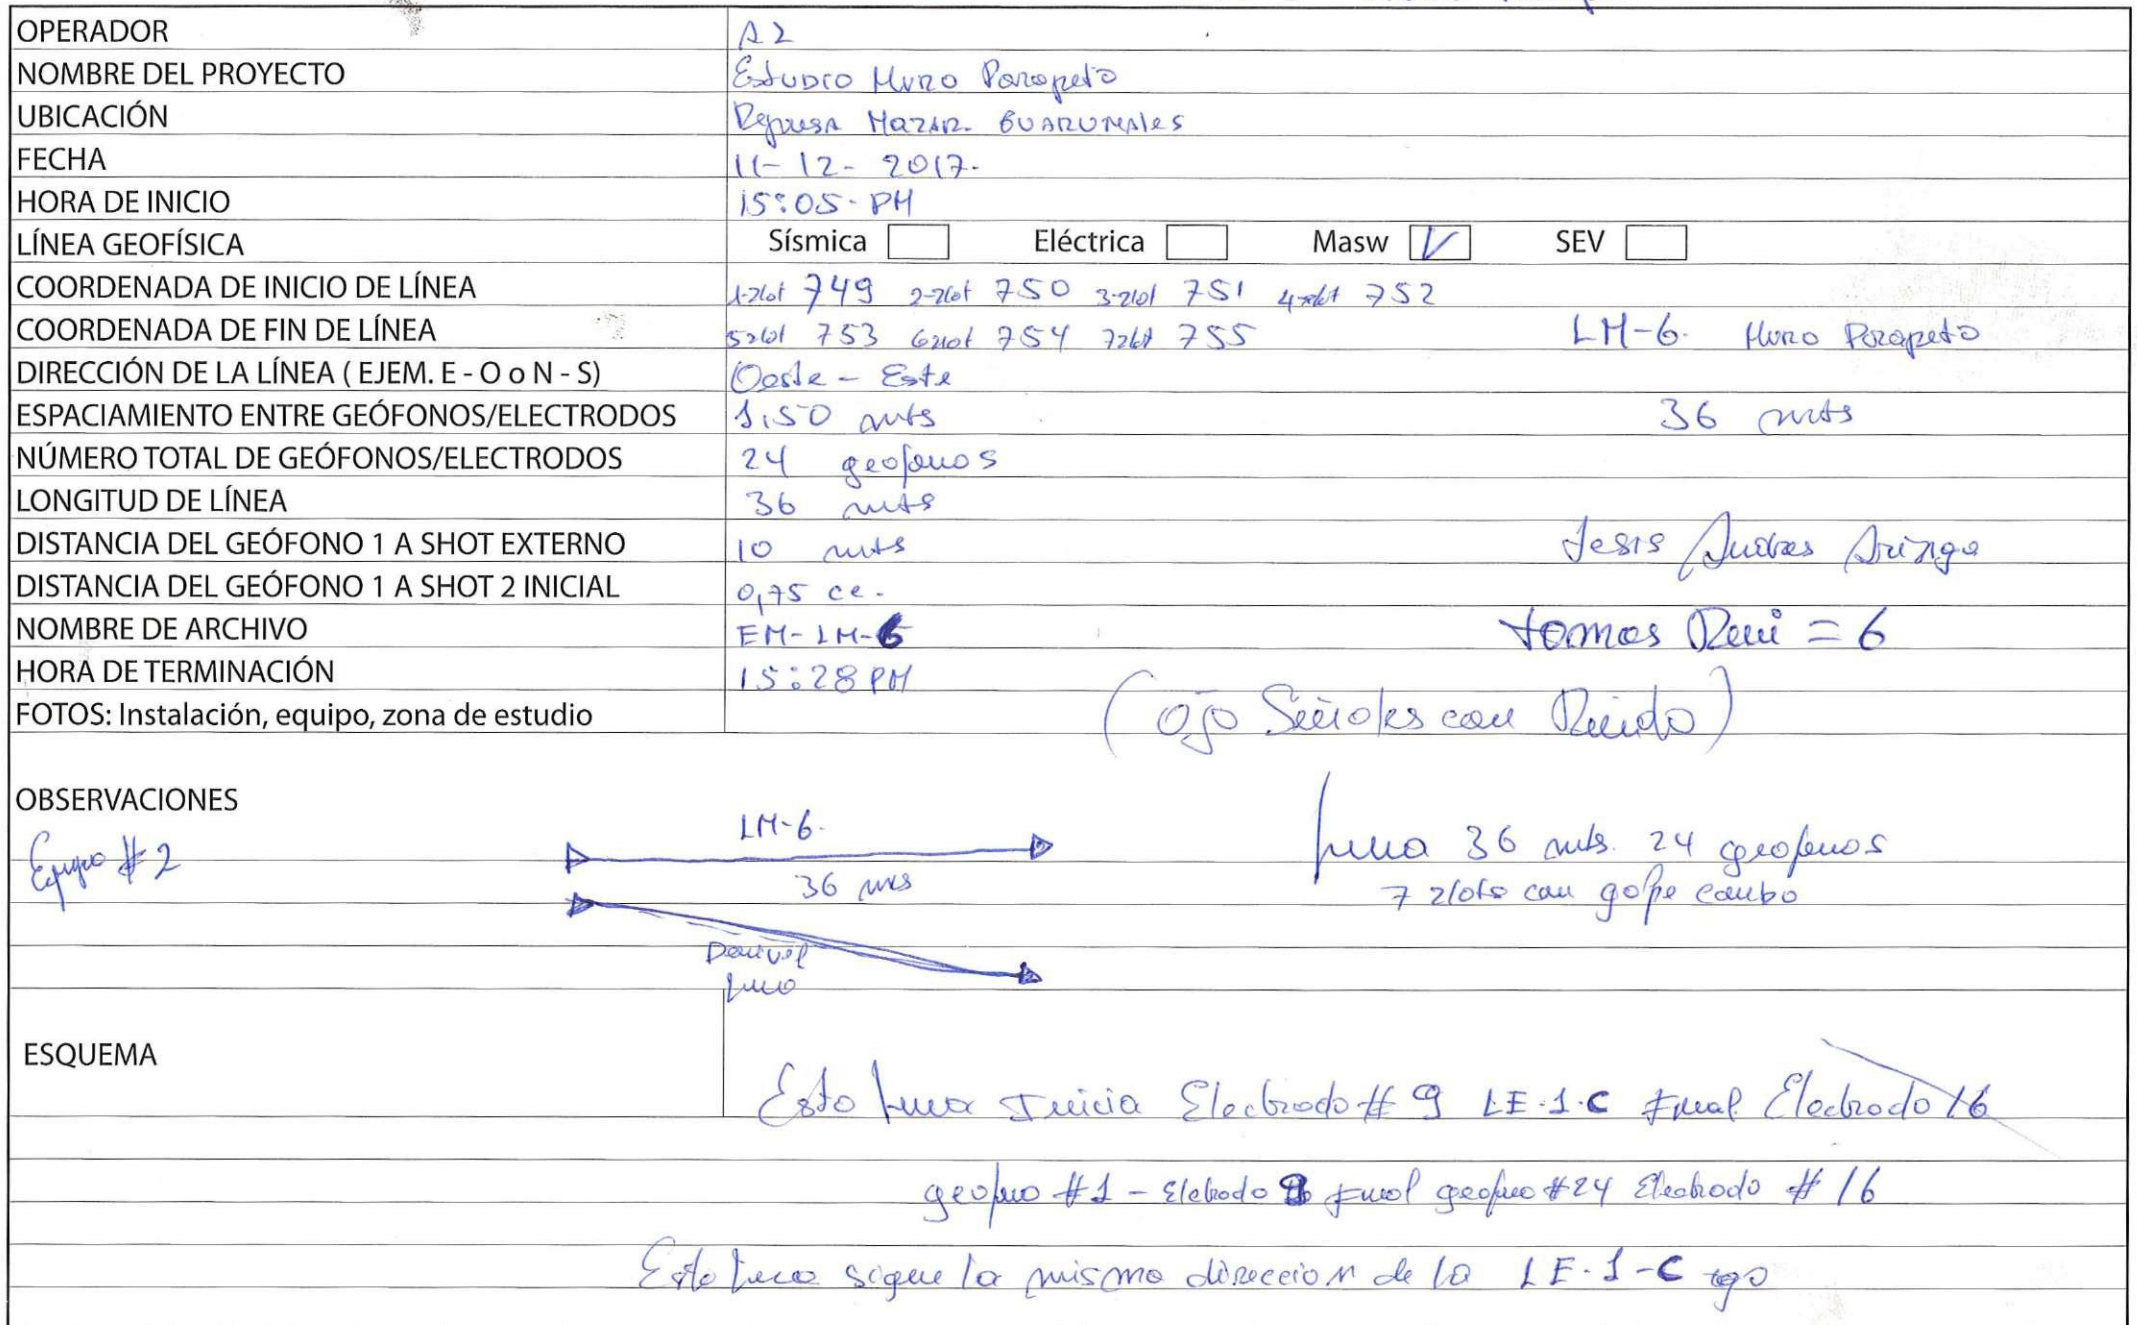 OPERADOR A2
NOMBRE DEL PROYECTO Estudio Muro Parapeto
UBICACIÓN Represa Mazar. GUARUMALES
FECHA 11-12-2017.
HORA DE INICIO 15:05-PM
LÍNEA GEOFÍSICA Sísmica Eléctrica Masw V SEV
COORDENADA DE INICIO DE LÍNEA 749 750 751 752
COORDENADA DE FIN DE LÍNEA 753 754 755 LM-6. Muro Parapeto
DIRECCIÓN DE LA LÍNEA ( EJEM. E - O o N - S) Oeste - Este
ESPACIAMIENTO ENTRE GEÓFONOS/ELECTRODOS 1,50 mts 36 mts
NÚMERO TOTAL DE GEÓFONOS/ELECTRODOS 24 geofonos
LONGITUD DE LÍNEA 36 mts
DISTANCIA DEL GEÓFONO 1 A SHOT EXTERNO 10 mts
DISTANCIA DEL GEÓFONO 1 A SHOT 2 INICIAL 0,75
NOMBRE DE ARCHIVO EM-LM-6 = 6
HORA DE TERMINACIÓN 15:28 PM
FOTOS: Instalación, equipo, zona de estudio (Ojo Señales con Ruido)
OBSERVACIONES
LM-6.
Equipo #2
36 mts
linea 36 mts. 24 geofonos
7 con golpe combo
Desnivel
linea
ESQUEMA
Esta linea Inicia Electrodo # 9 LE-1-C Final Electrodo 16
geofono #1 - Eletrodo 9 Final geofono #24 Electrodo # 16
Esta linea sigue la misma direccion de la LE-1-C